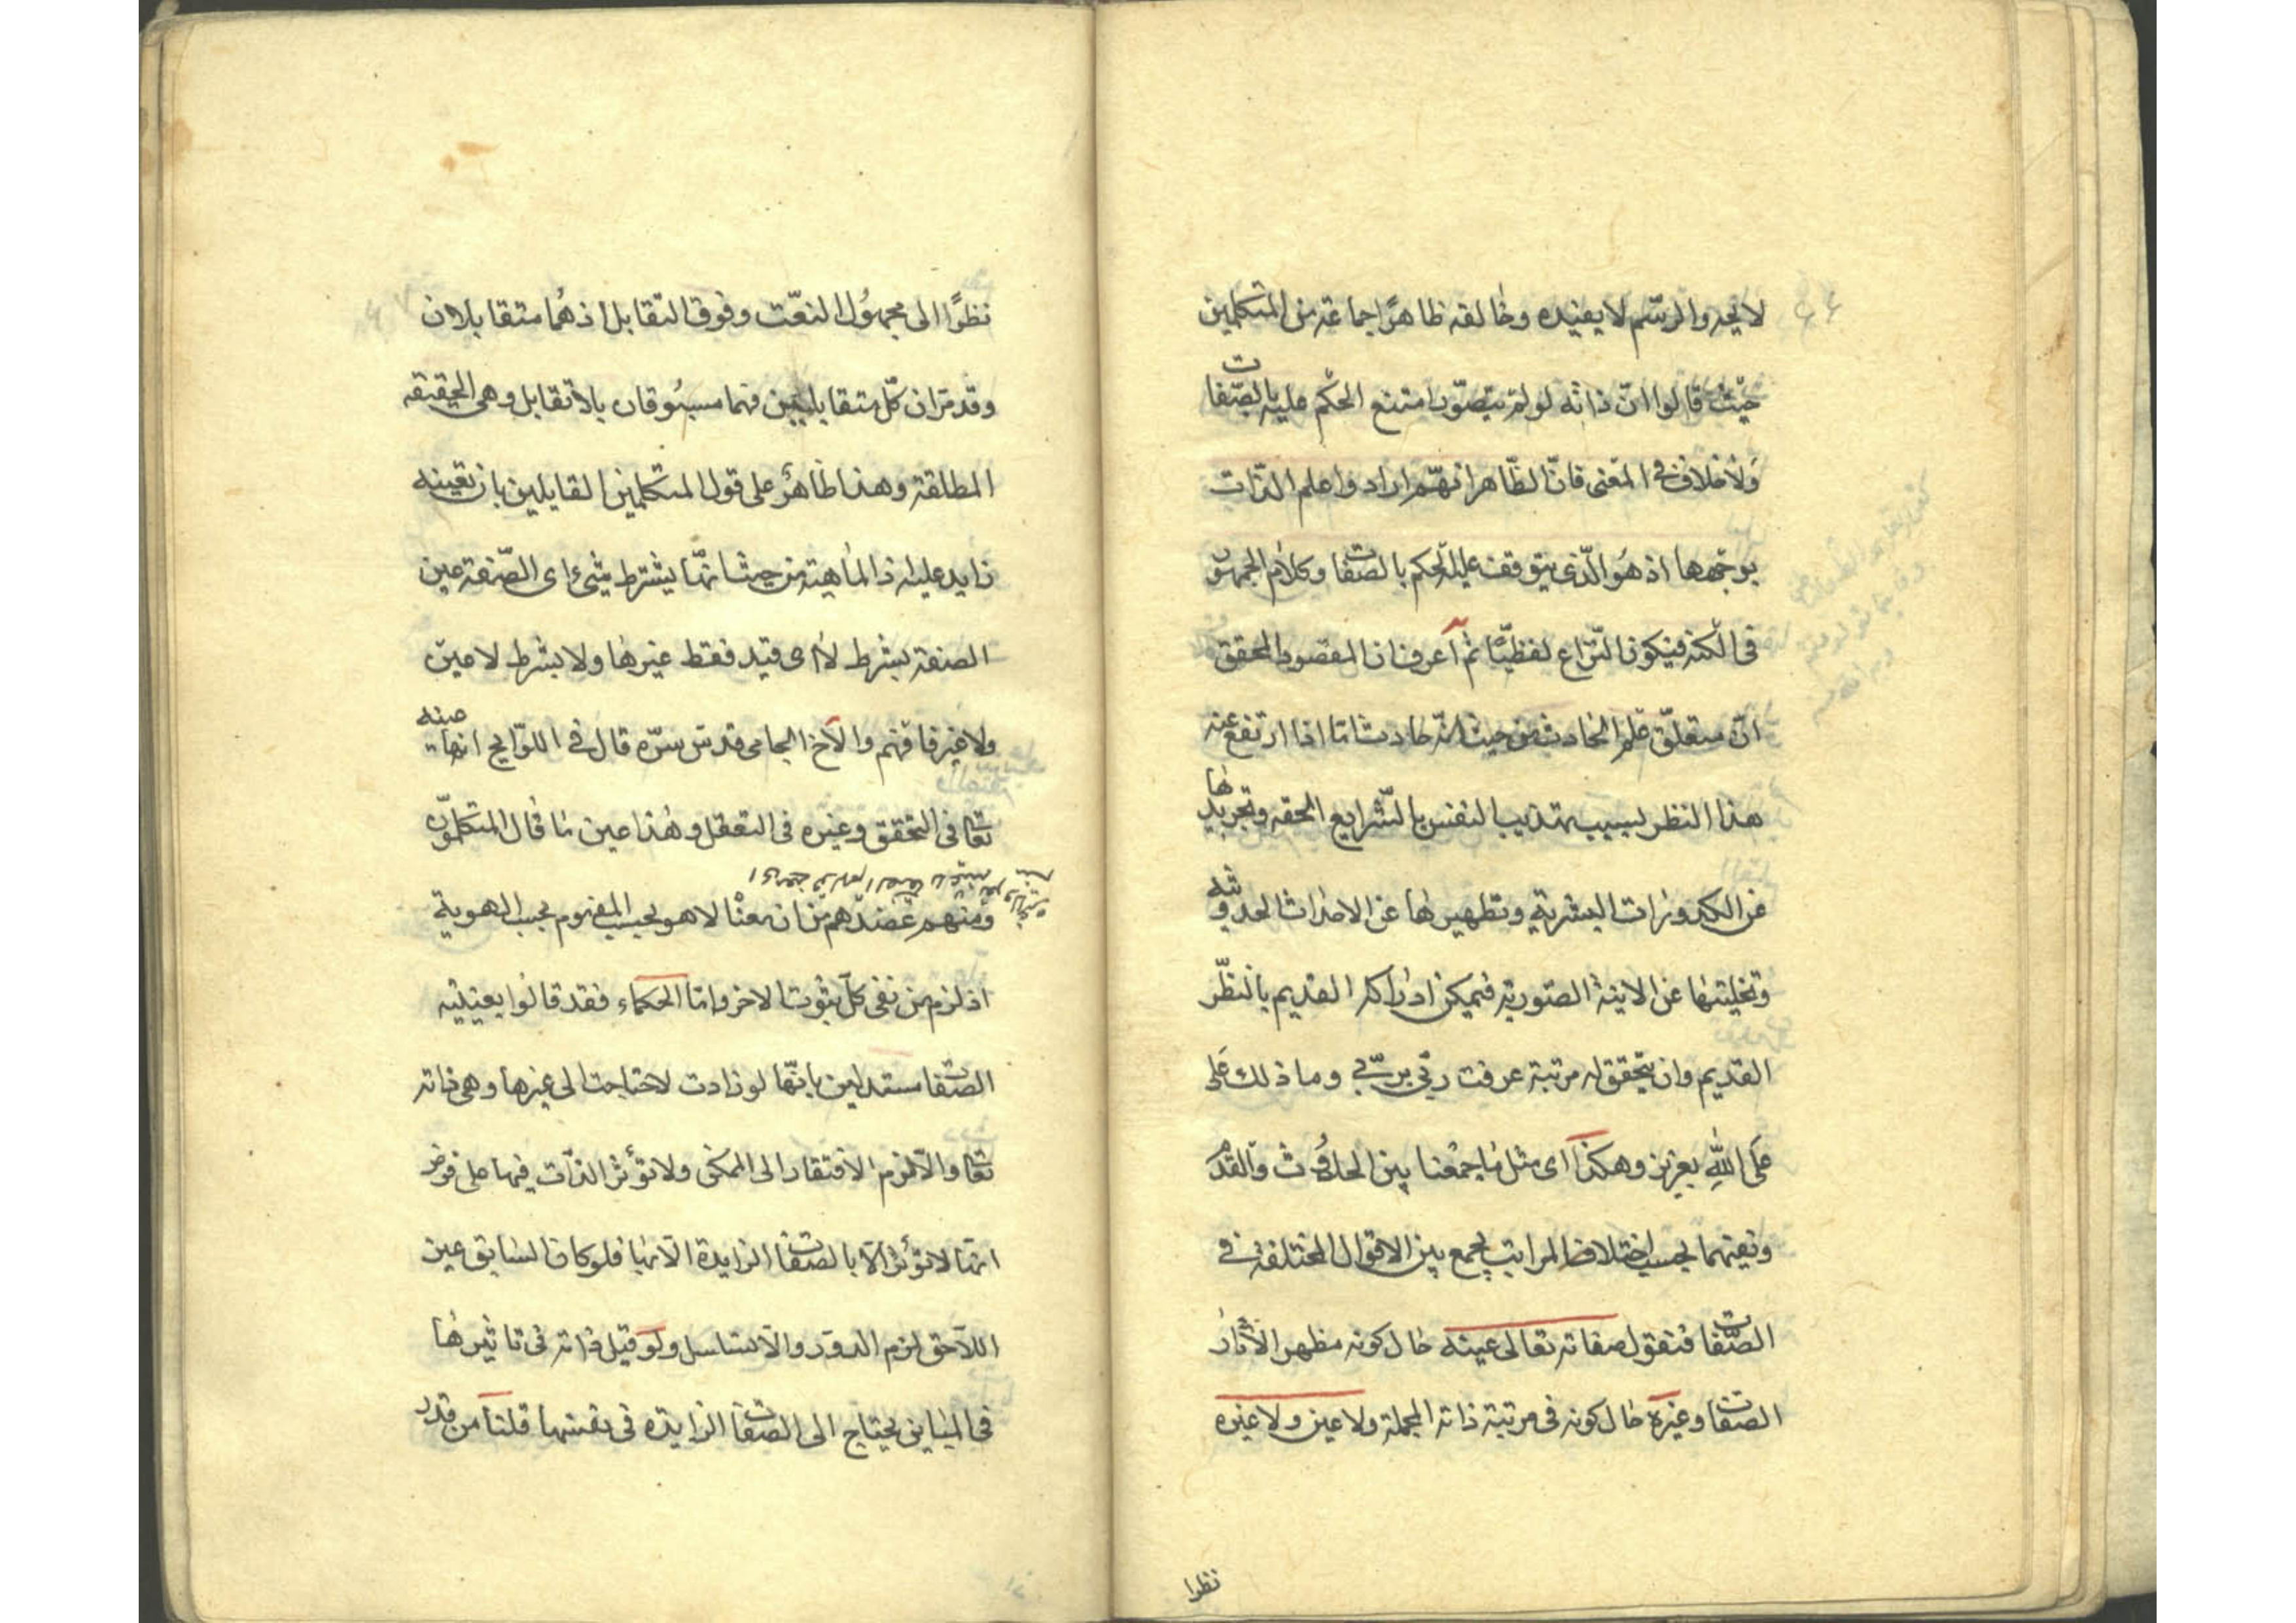 لا يحد والرسّم لا يفيده وخالفه ظاهرًا جماعة من المتكلمين
حيث قالوا انّ ذاته لو لم يتصوّر امتنع الحكم عليه بالصّفات
ولا خلاف في المعنى فانّ الظّاهر انهّم ارادوا علم الذات
بوجهها اذ هُو الّذى يتوقف عليه الحكم بالصّفات وكلام الجمهور
فى الكنه فيكون النّزاع لفظيًّا ثم اعرف ان المقصود المحقق
انّ متعلّق علم الحادث من حيث انّه حادث امّا اذا ارتفع عنه
هذا النظر بسبب تهذيب النفس بالشّرايع الحقه وتجريدها
عن الكدورات البشرية وتطهيرها عن الاحداث الحدوثيه
وتخليتها عن الابنية الصّورية فيمكن ادراكه القديم بالنظّر
القديم وان يتحقق له مرتبة عرفت ربّى بربّي وما ذلك عَلى
عَلى اللّٰهِ بعزيز وهكذا اى مثل ما جمعْنا بين الحدُوث والقدم
ونفيهما بحسب اختلاف المراتب يجمع بين الاقوال المختلفة فى
الصّفات فنقول صفاته تعالى عينه حال كونه مظهر الآثار
الصفات وغيره حال كونه فى مرتبة ذاته المجملة ولا عين ولا غيره
نظرا
نظرًا الى مجهوُل النعّت وفوق التقابل اذ هُما متقابلان
وقد مرّ ان كلّ متقابلين فهما مسبُوقان بلا تقابل وهى الحقيقه
المطلقة وهذا ظاهرٌ على قول المتكلمين القايلين بان تعينه
زايد عليه اذ الماهية من حيث انهّا بشرط شئ اى الصّفة عين
الصفة بشرط لا اى قيد فقط غيرها ولا بشرط لا عين
ولا غير فافهم والآخ الجامى قدس سرّه قال فى اللوّايح انها عينه
تعا فى التحقق وغيره فى التعقل وهٰذا عين ما قال المتكلمّون
ومنهم عضدهم من ان معنا لا هو بحسب المفهوم بحسب الهوية
اذ لزم من نفى كلّ ثبوت الاخر وامّا الحكماء فقد قالوا بعينيّه
الصّفات مستدلين بانهّا لو زادت لاحتاجت الى غيرها وهى ذاته
تعا والّا لزم الافتقار الى الممكن ولا تؤثر الذّات فيها على فرض
انها لا تؤثر الّا بالصّفات الزايدة الّا بها فلو كان السّابق عين
اللّاحق لزم الدّور والّا تسلسل ولو قيل ذاته فى تاثيرها
فى المباين يحتاج الى الصفات الزايدة فى نفسها قلنا من قدر